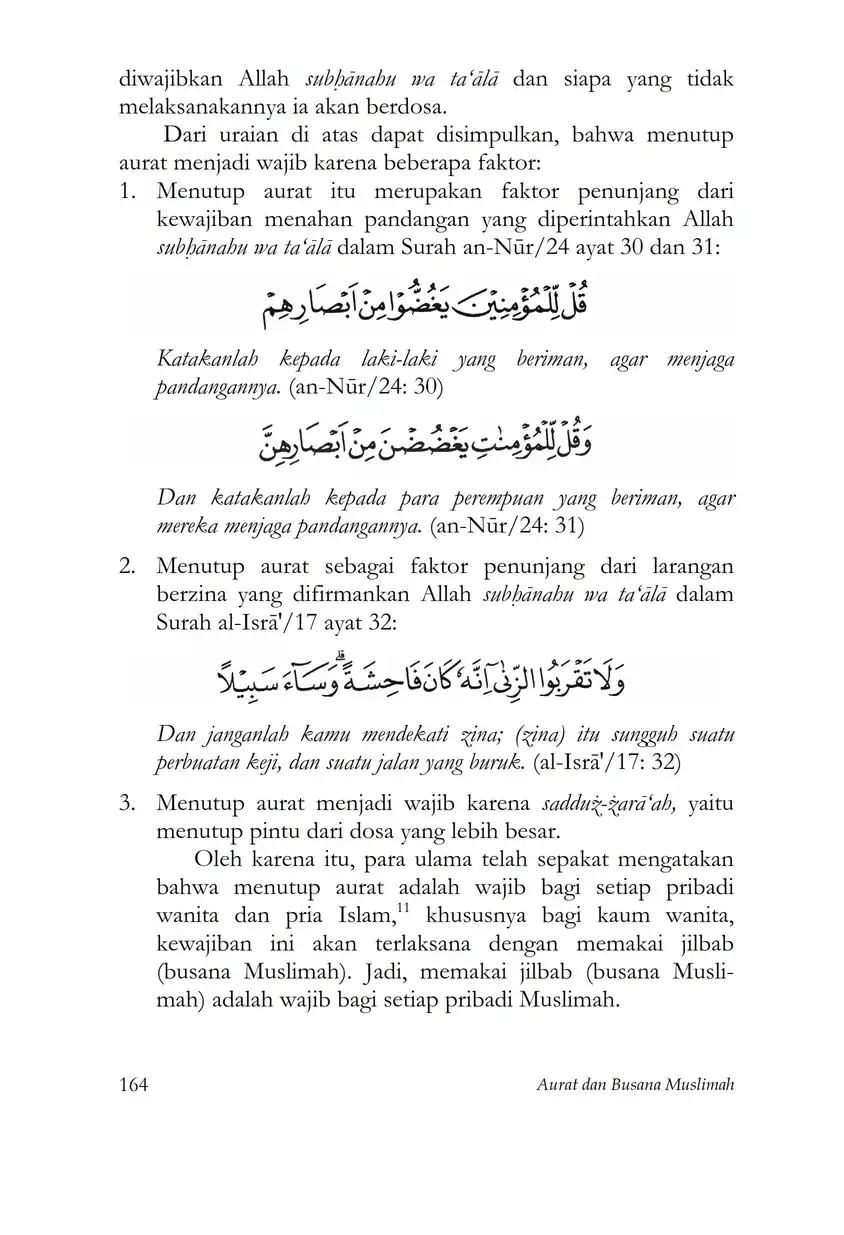 diwajibkan Allah subḥānahu wa ta‘ālā dan siapa yang tidak
melaksanakannya ia akan berdosa.
Dari uraian di atas dapat disimpulkan, bahwa menutup
aurat menjadi wajib karena beberapa faktor:
1. Menutup aurat itu merupakan faktor penunjang dari
kewajiban menahan pandangan yang diperintahkan Allah
subḥānahu wa ta‘ālā dalam Surah an-Nūr/24 ayat 30 dan 31:
قُلْ لِّلْمُؤْمِنِيْنَ يَغُضُّوْا مِنْ اَبْصَارِهِمْ
Katakanlah kepada laki-laki yang beriman, agar menjaga
pandangannya. (an-Nūr/24: 30)
وَقُلْ لِّلْمُؤْمِنٰتِ يَغْضُضْنَ مِنْ اَبْصَارِهِنَّ
Dan katakanlah kepada para perempuan yang beriman, agar
mereka menjaga pandangannya. (an-Nūr/24: 31)
2. Menutup aurat sebagai faktor penunjang dari larangan
berzina yang difirmankan Allah subḥānahu wa ta‘ālā dalam
Surah al-Isrā'/17 ayat 32:
وَلَا تَقْرَبُوا الزِّنٰٓى اِنَّهٗ كَانَ فَاحِشَةً ۗوَسَاۤءَ سَبِيْلًا
Dan janganlah kamu mendekati zina; (zina) itu sungguh suatu
perbuatan keji, dan suatu jalan yang buruk. (al-Isrā'/17: 32)
3. Menutup aurat menjadi wajib karena sadduż-żarā‘ah, yaitu
menutup pintu dari dosa yang lebih besar.
Oleh karena itu, para ulama telah sepakat mengatakan
bahwa menutup aurat adalah wajib bagi setiap pribadi
wanita dan pria Islam,¹¹ khususnya bagi kaum wanita,
kewajiban ini akan terlaksana dengan memakai jilbab
(busana Muslimah). Jadi, memakai jilbab (busana Musli-
mah) adalah wajib bagi setiap pribadi Muslimah.
164 Aurat dan Busana Muslimah